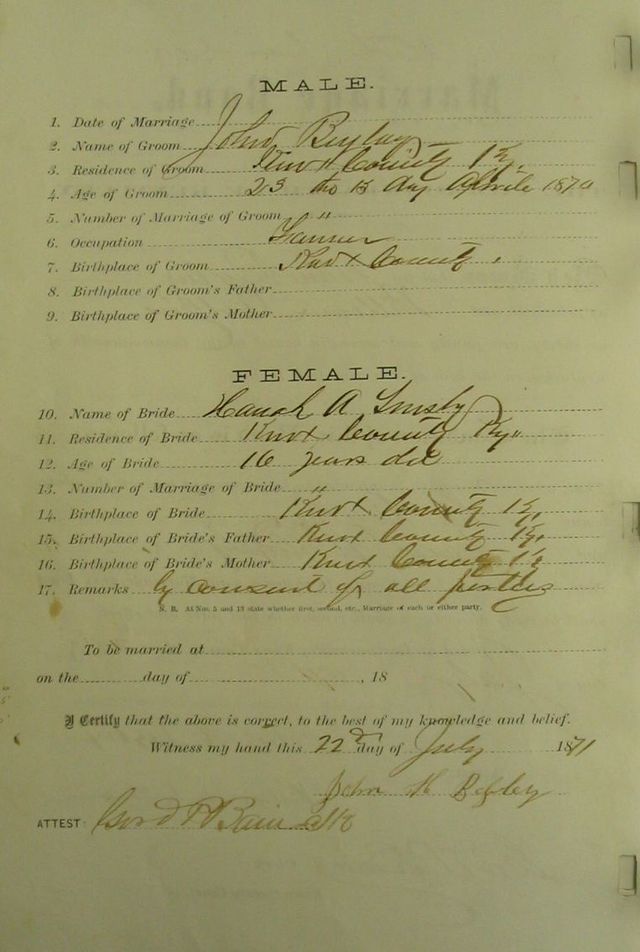 MALE.
1. Date of Marriage
2. Name of Groom John
3. Residence of Groom Knox County Ky.
4. Age of Groom 23 the 13 day Aprile 1870
5. Number of Marriage of Groom "
6. Occupation Farmer
7. Birthplace of Groom Knox County
8. Birthplace of Groom's Father
9. Birthplace of Groom's Mother
FEMALE.
10. Name of Bride Hanah A
11. Residence of Bride Knox County Ky"
12. Age of Bride 16 years old
13. Number of Marriage of Bride "
14. Birthplace of Bride Knox County Ky
15. Birthplace of Bride's Father Knox County Ky.
16. Birthplace of Bride's Mother Knox County Ky
17. Remarks by consent of all parties
N. B. At Nos. 5 and 13 state whether first, second, etc., Marriage of each or either party.
To be married at
on the day of , 18
I Certify that the above is correct, to the best of my knowledge and belief.
Witness my hand this 22nd day of July 1871
John H
ATTEST: